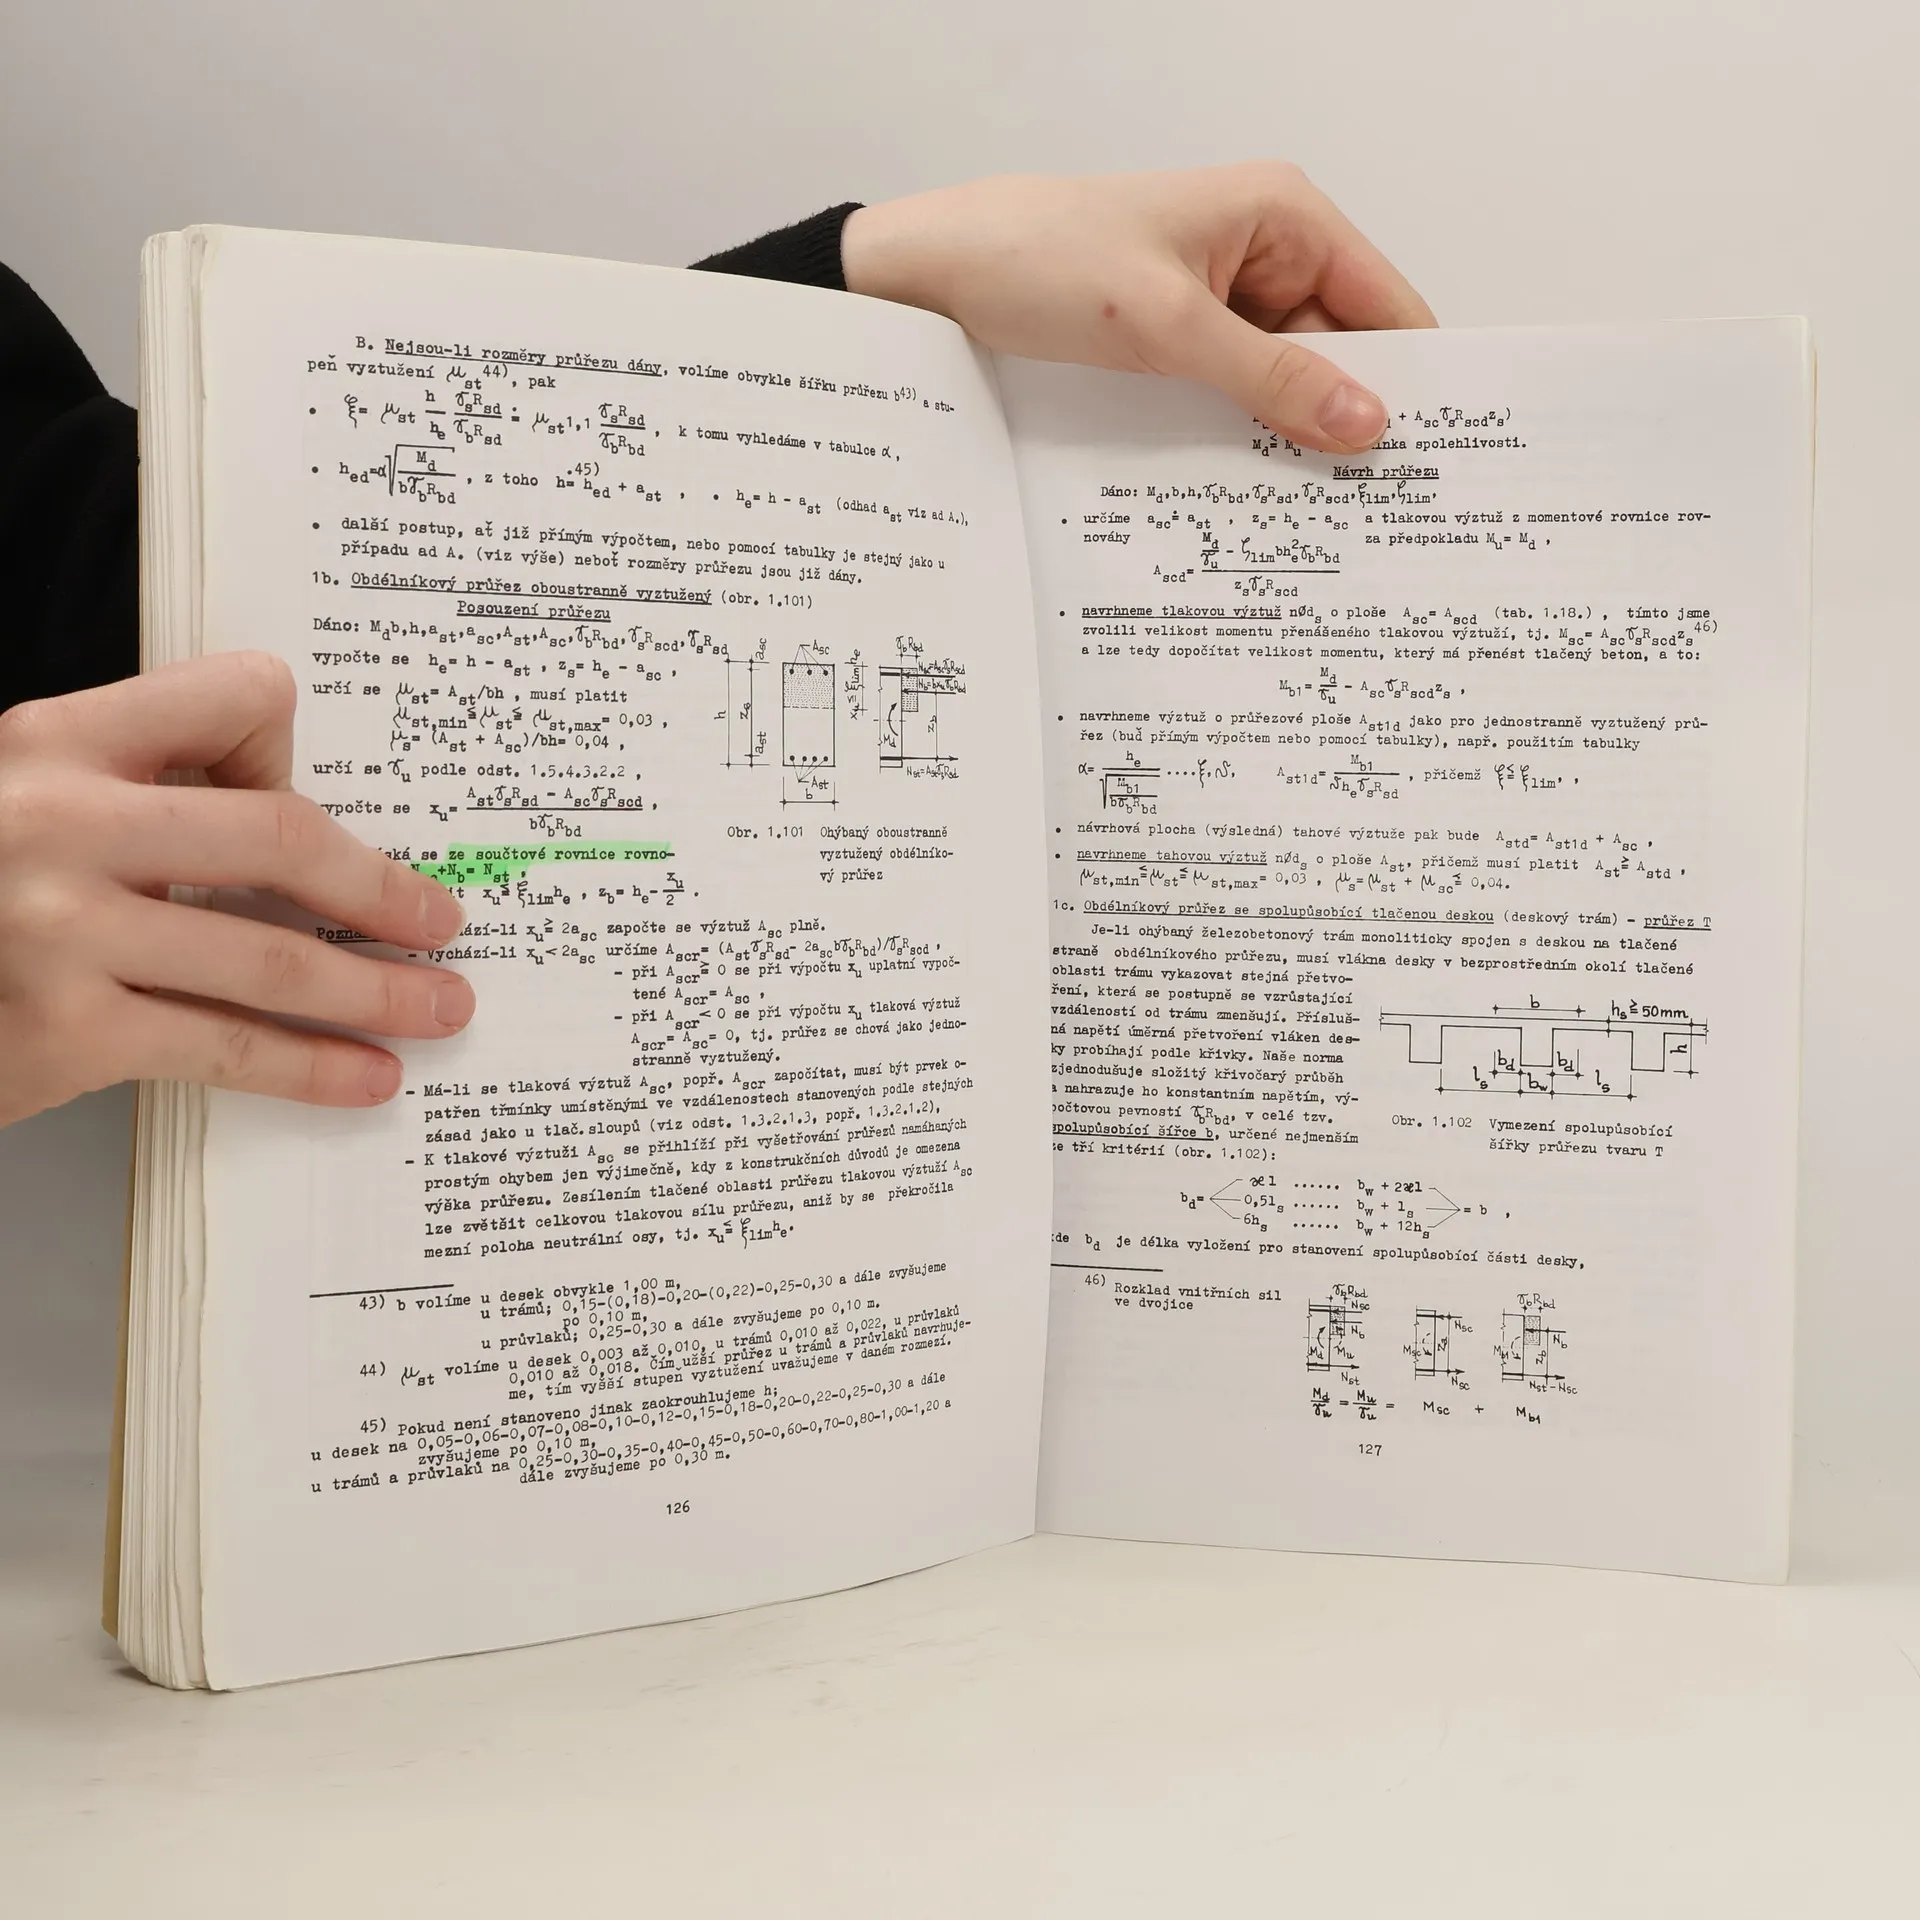 B. Nejsou-li rozměry průřezu dány, volíme obvykle šířku průřezu b43) a stu-
peň vyztužení μst 44), pak
• ξ= μst h/he γsRsd/γbRsd ≐ μst1,1 γsRsd/γbRbd , k tomu vyhledáme v tabulce α,
• hed=α√(Md/bγbRbd) , z toho h≐hed + ast 45) , • he= h - ast (odhad ast viz ad A.),
• další postup, ať již přímým výpočtem, nebo pomocí tabulky je stejný jako u
případu ad A. (viz výše) neboť rozměry průřezu jsou již dány.
1b. Obdélníkový průřez oboustranně vyztužený (obr. 1.101)
Posouzení průřezu
Dáno: Md,b,h,ast,asc,Ast,Asc,γbRbd,γsRscd,γsRsd
vypočte se he= h - ast , zs= he - asc ,
určí se μst= Ast/bh , musí platit
μst,min≦μst≦μst,max= 0,03 ,
μs= (Ast + Asc)/bh= 0,04 ,
určí se γu podle odst. 1.5.4.3.2.2 ,
vypočte se xu= (AstγsRsd - AscγsRscd)/bγbRbd ,
se ze součtové rovnice rovno-
+Nb= Nst ,
xu≦ξlimhe , zb= he-xu/2 .
Asc
h
zs
asc
ast
Ast
b
xu≦ξlimhe
γbRbd
Nsc=AscγsRscd
Nb=bxuγbRbd
Md
zb
Nst=AstγsRsd
Obr. 1.101 Ohýbaný oboustranně
vyztužený obdélníko-
vý průřez
xu≧ 2asc započte se výztuž Asc plně.
- Vychází-li xu< 2asc určíme Ascr= (AstγsRsd- 2ascbγbRbd)/γsRscd ,
- při Ascr≧ 0 se při výpočtu xu uplatní vypoč-
tené Ascr= Asc ,
- při Ascr< 0 se při výpočtu xu tlaková výztuž
Ascr= Asc= 0, tj. průřez se chová jako jedno-
stranně vyztužený.
- Má-li se tlaková výztuž Asc, popř. Ascr započítat, musí být prvek o-
patřen třmínky umístěnými ve vzdálenostech stanovených podle stejných
zásad jako u tlač.sloupů (viz odst. 1.3.2.1.3, popř. 1.3.2.1.2),
- K tlakové výztuži Asc se přihlíží při vyšetřování průřezů namáhaných
prostým ohybem jen výjimečně, kdy z konstrukčních důvodů je omezena
výška průřezu. Zesílením tlačené oblasti průřezu tlakovou výztuží Asc
lze zvětšit celkovou tlakovou sílu průřezu, aniž by se překročila
mezní poloha neutrální osy, tj. xu≦ξlimhe.
43) b volíme u desek obvykle 1,00 m,
u trámů; 0,15-(0,18)-0,20-(0,22)-0,25-0,30 a dále zvyšujeme
po 0,10 m,
u průvlaků; 0,25-0,30 a dále zvyšujeme po 0,10 m.
44) μst volíme u desek 0,003 až 0,010, u trámů 0,010 až 0,022, u průvlaků
0,010 až 0,018. Čím užší průřez u trámů a průvlaků navrhuje-
me, tím vyšší stupeň vyztužení uvažujeme v daném rozmezí.
45) Pokud není stanoveno jinak zaokrouhlujeme h;
u desek na 0,05-0,06-0,07-0,08-0,10-0,12-0,15-0,18-0,20-0,22-0,25-0,30 a dále
zvyšujeme po 0,10 m,
u trámů a průvlaků na 0,25-0,30-0,35-0,40-0,45-0,50-0,60-0,70-0,80-1,00-1,20 a
dále zvyšujeme po 0,30 m.
126
+ AscγsRscdzs)
Md≦ Mu spolehlivosti.
Návrh průřezu
Dáno: Md,b,h,γbRbd,γsRsd,γsRscd,ξlim,ζlim,
• určíme asc≐ast , zs= he - asc a tlakovou výztuž z momentové rovnice rov-
nováhy za předpokladu Mu= Md ,
Ascd= (Md/γu - ζlimbhe²γbRbd)/zsγsRscd
• navrhneme tlakovou výztuž nØds o ploše Asc= Ascd (tab. 1.18.) , tímto jsme
zvolili velikost momentu přenášeného tlakovou výztuží, tj. Msc= AscγsRscdzs 46)
a lze tedy dopočítat velikost momentu, který má přenést tlačený beton, a to:
Mb1= Md/γu - AscγsRscdzs ,
• navrhneme výztuž o průřezové ploše Ast1d jako pro jednostranně vyztužený prů-
řez (buď přímým výpočtem nebo pomocí tabulky), např. použitím tabulky
α= he/√(Mb1/bγbRbd) ....ξ,ϑ, Ast1d= Mb1/ϑheγsRsd , přičemž ξ≦ξlim, ,
• návrhová plocha (výsledná) tahové výztuže pak bude Astd= Ast1d + Asc ,
• navrhneme tahovou výztuž nØds o ploše Ast, přičemž musí platit Ast≧ Astd ,
μst,min≦μst≦μst,max= 0,03 , μs=μst + μsc≦ 0,04.
1c. Obdélníkový průřez se spolupůsobící tlačenou deskou (deskový trám) - průřez T
Je-li ohýbaný železobetonový trám monoliticky spojen s deskou na tlačené
straně obdélníkového průřezu, musí vlákna desky v bezprostředním okolí tlačené
oblasti trámu vykazovat stejná přetvo-
ření, která se postupně se vzrůstající
vzdáleností od trámu zmenšují. Přísluš-
ná napětí úměrná přetvoření vláken des-
ky probíhají podle křivky. Naše norma
zjednodušuje složitý křivočarý průběh
a nahrazuje ho konstantním napětím, vý-
počtovou pevností γbRbd, v celé tzv.
spolupůsobící šířce b, určené nejmenším
ze tří kritérií (obr. 1.102):
b
hs≧50mm
h
bd
bd
ls
bw
ls
Obr. 1.102 Vymezení spolupůsobící
šířky průřezu tvaru T
æl ...... bw + 2æl
bd= 0,5ls ...... bw + ls = b ,
6hs ...... bw + 12hs
kde bd je délka vyložení pro stanovení spolupůsobící části desky,
46) Rozklad vnitřních sil
ve dvojice
γbRbd
Nsc
Nb
Md
Mu
Nst
Nsc
Msc
zs
Nsc
γbRbd
Nb
zb
Nst-Nsc
Md/γu = Mu/γu = Msc + Mb1
127